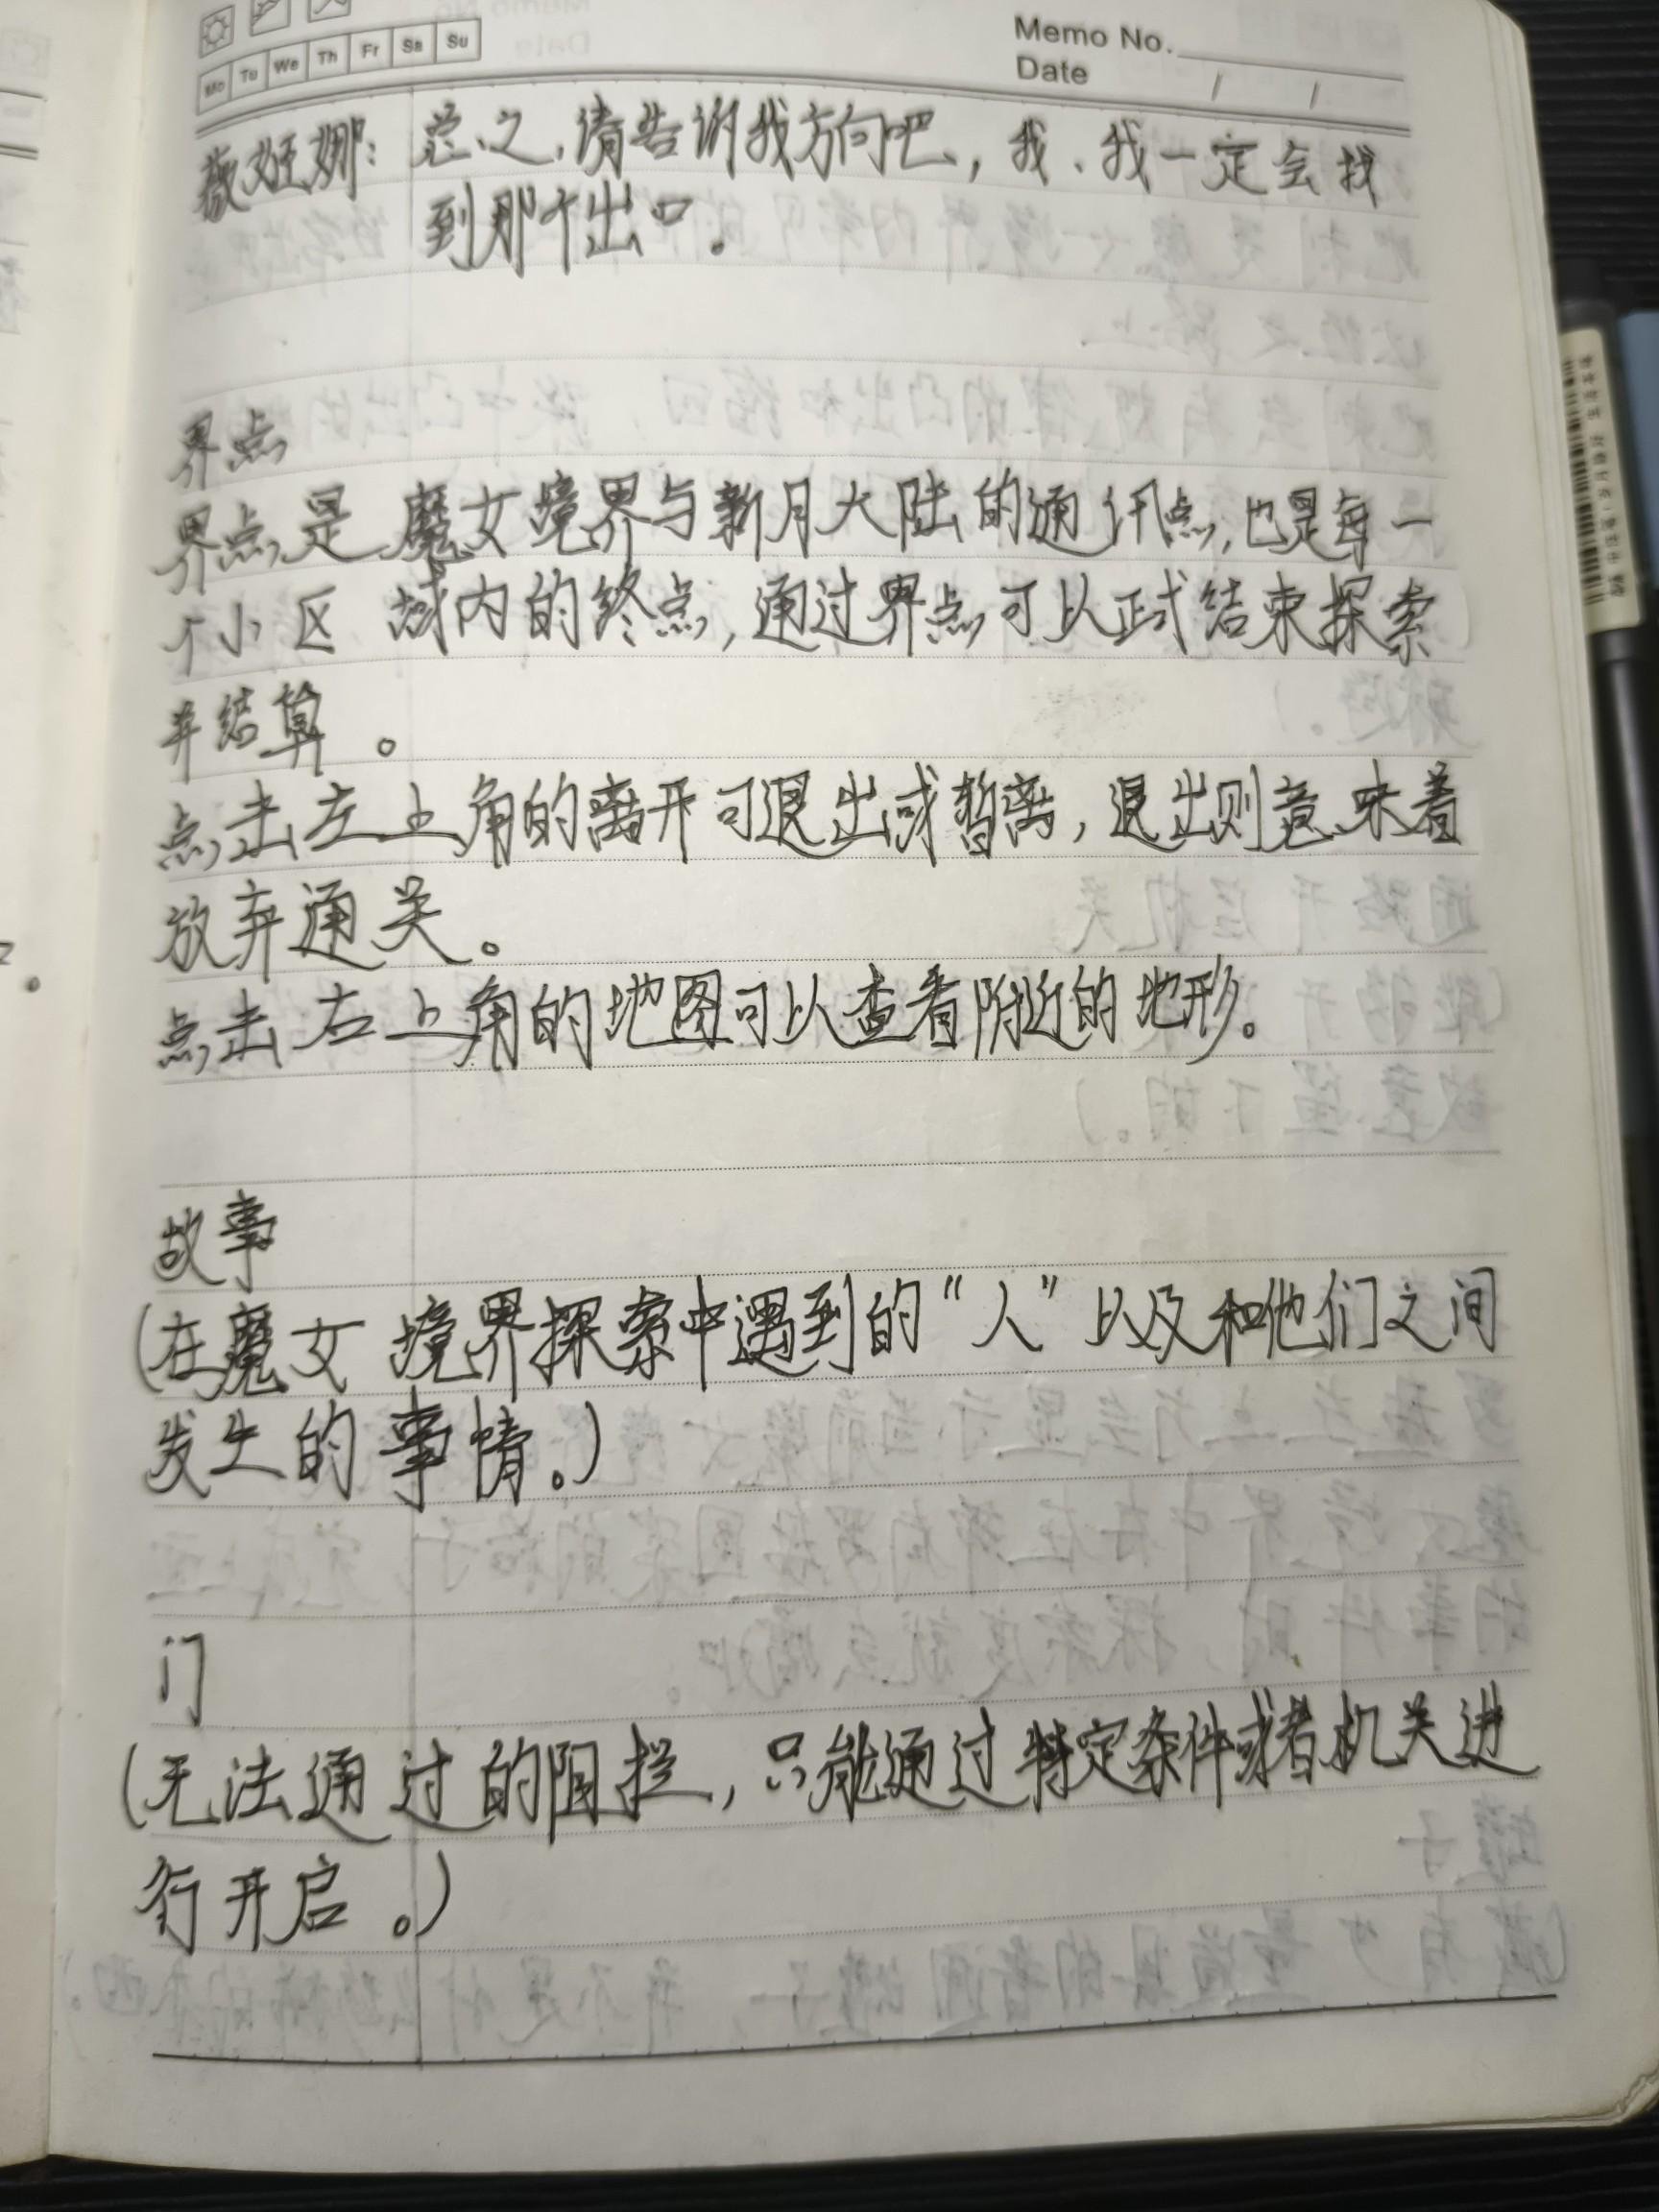 Mo Tu We Th Fr Sa Su
Memo No.
Date / /
薇娅娜：总之，请告诉我方向吧，我、我一定会找
到那个出口。
界点
界点是魔女境界与新月大陆的通讯点，也是每一
个小区域内的终点，通过界点可以正式结束探索
并结算。
点击左上角的离开可退出或暂离，退出则意味着
放弃通关。
点击右上角的地图可以查看附近的地形。
故事
（在魔女境界探索中遇到的“人”以及和他们之间
发生的事情。）
门
（无法通过的阻拦，只能通过特定条件或者机关进
行开启。）